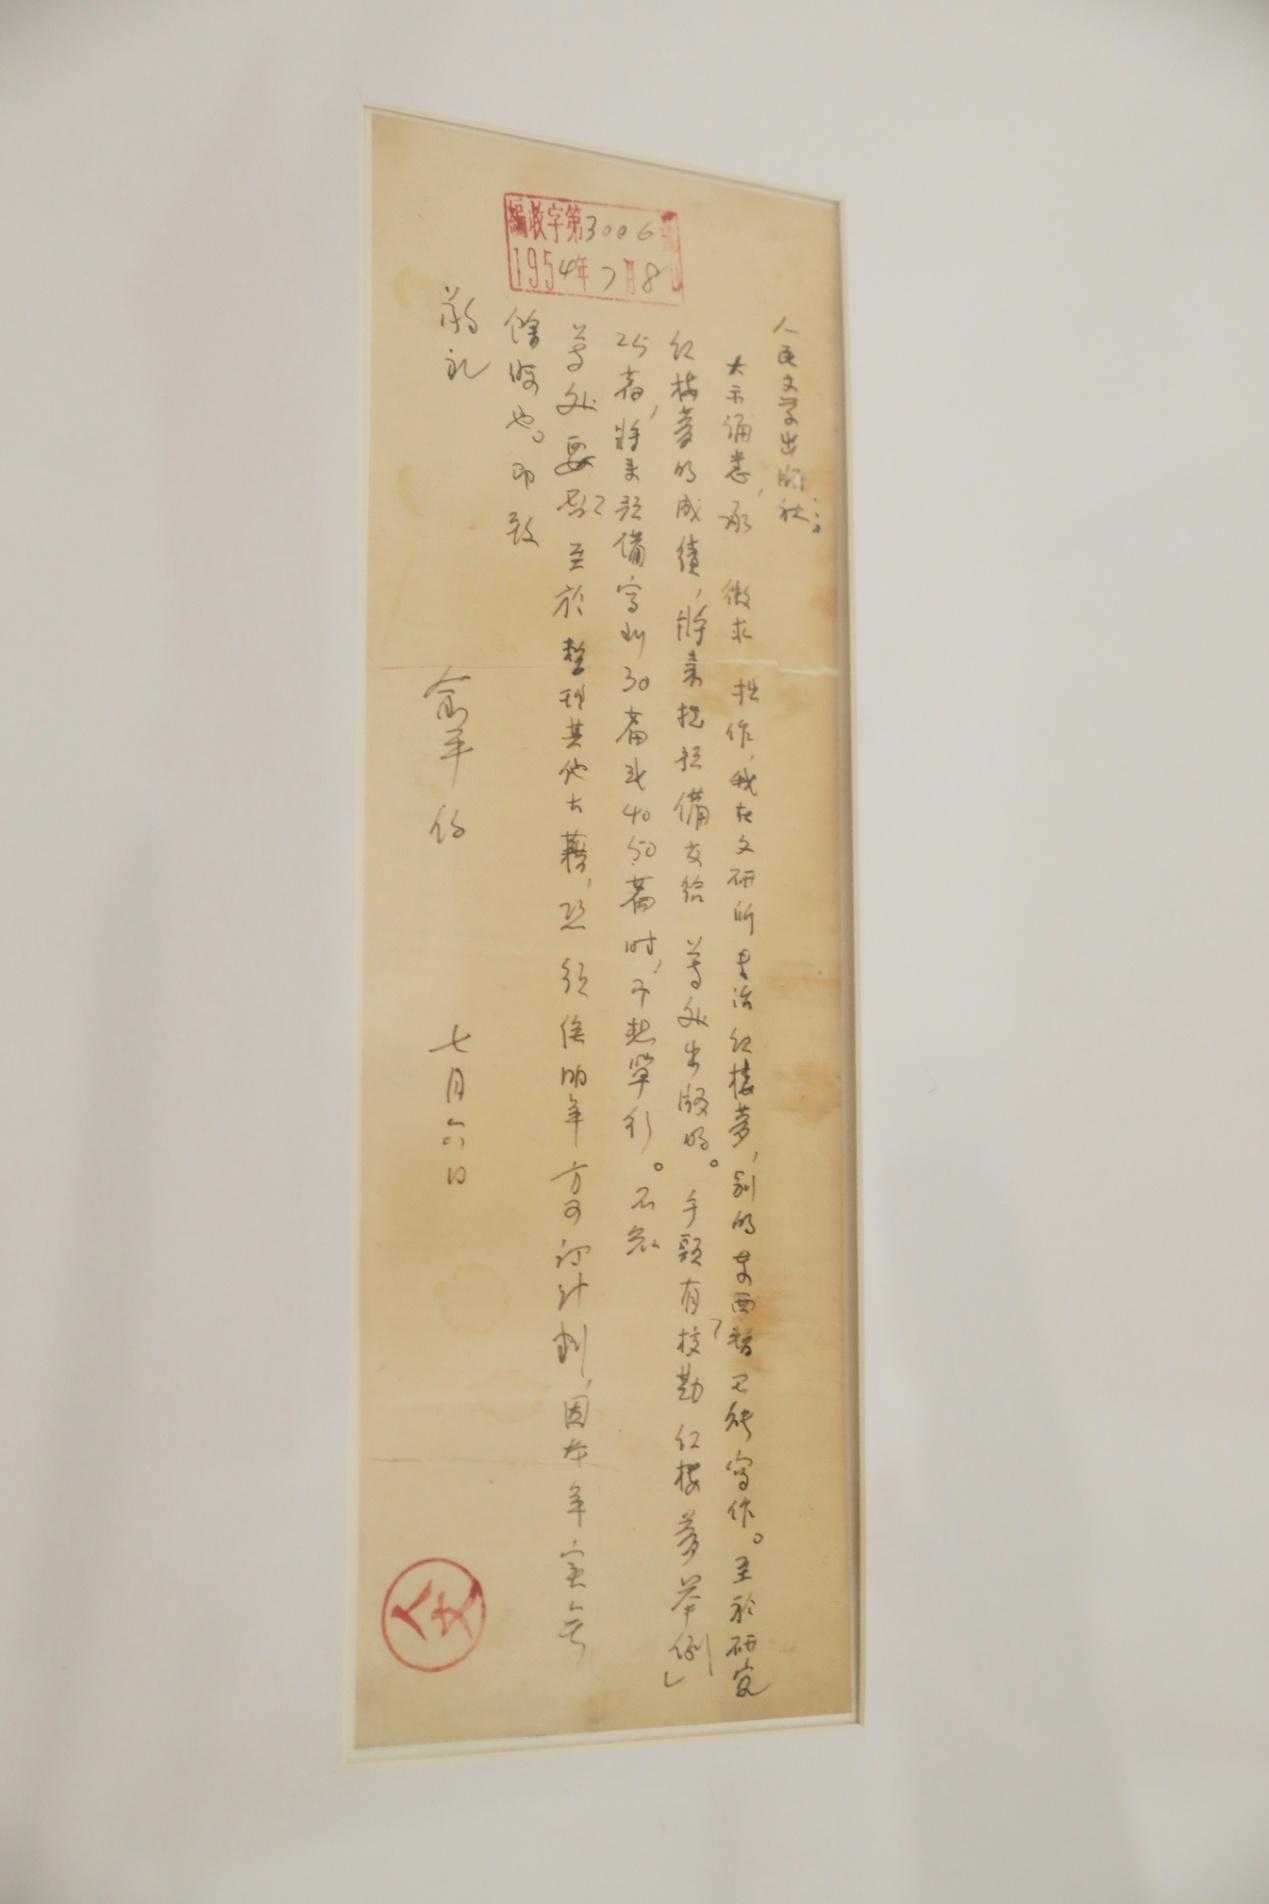 編收字第3006號
1954年7月8日
人民文学出版社：
大示诵悉，承 徵求 拙作，我在文研所専治红楼梦，别的东西暂不能写作。至於研究
红楼梦的成绩，将来拟預備交给 尊处出版的。手頭有「校勘红楼梦举例」
25 将来預備写到30萬或4050萬时，不想單行。不知
尊处要否？至於整理其他古籍，恐須俟明年方可訂計划，因本年实無
餘暇也。即致
敬礼
俞平伯 七月六日
人文